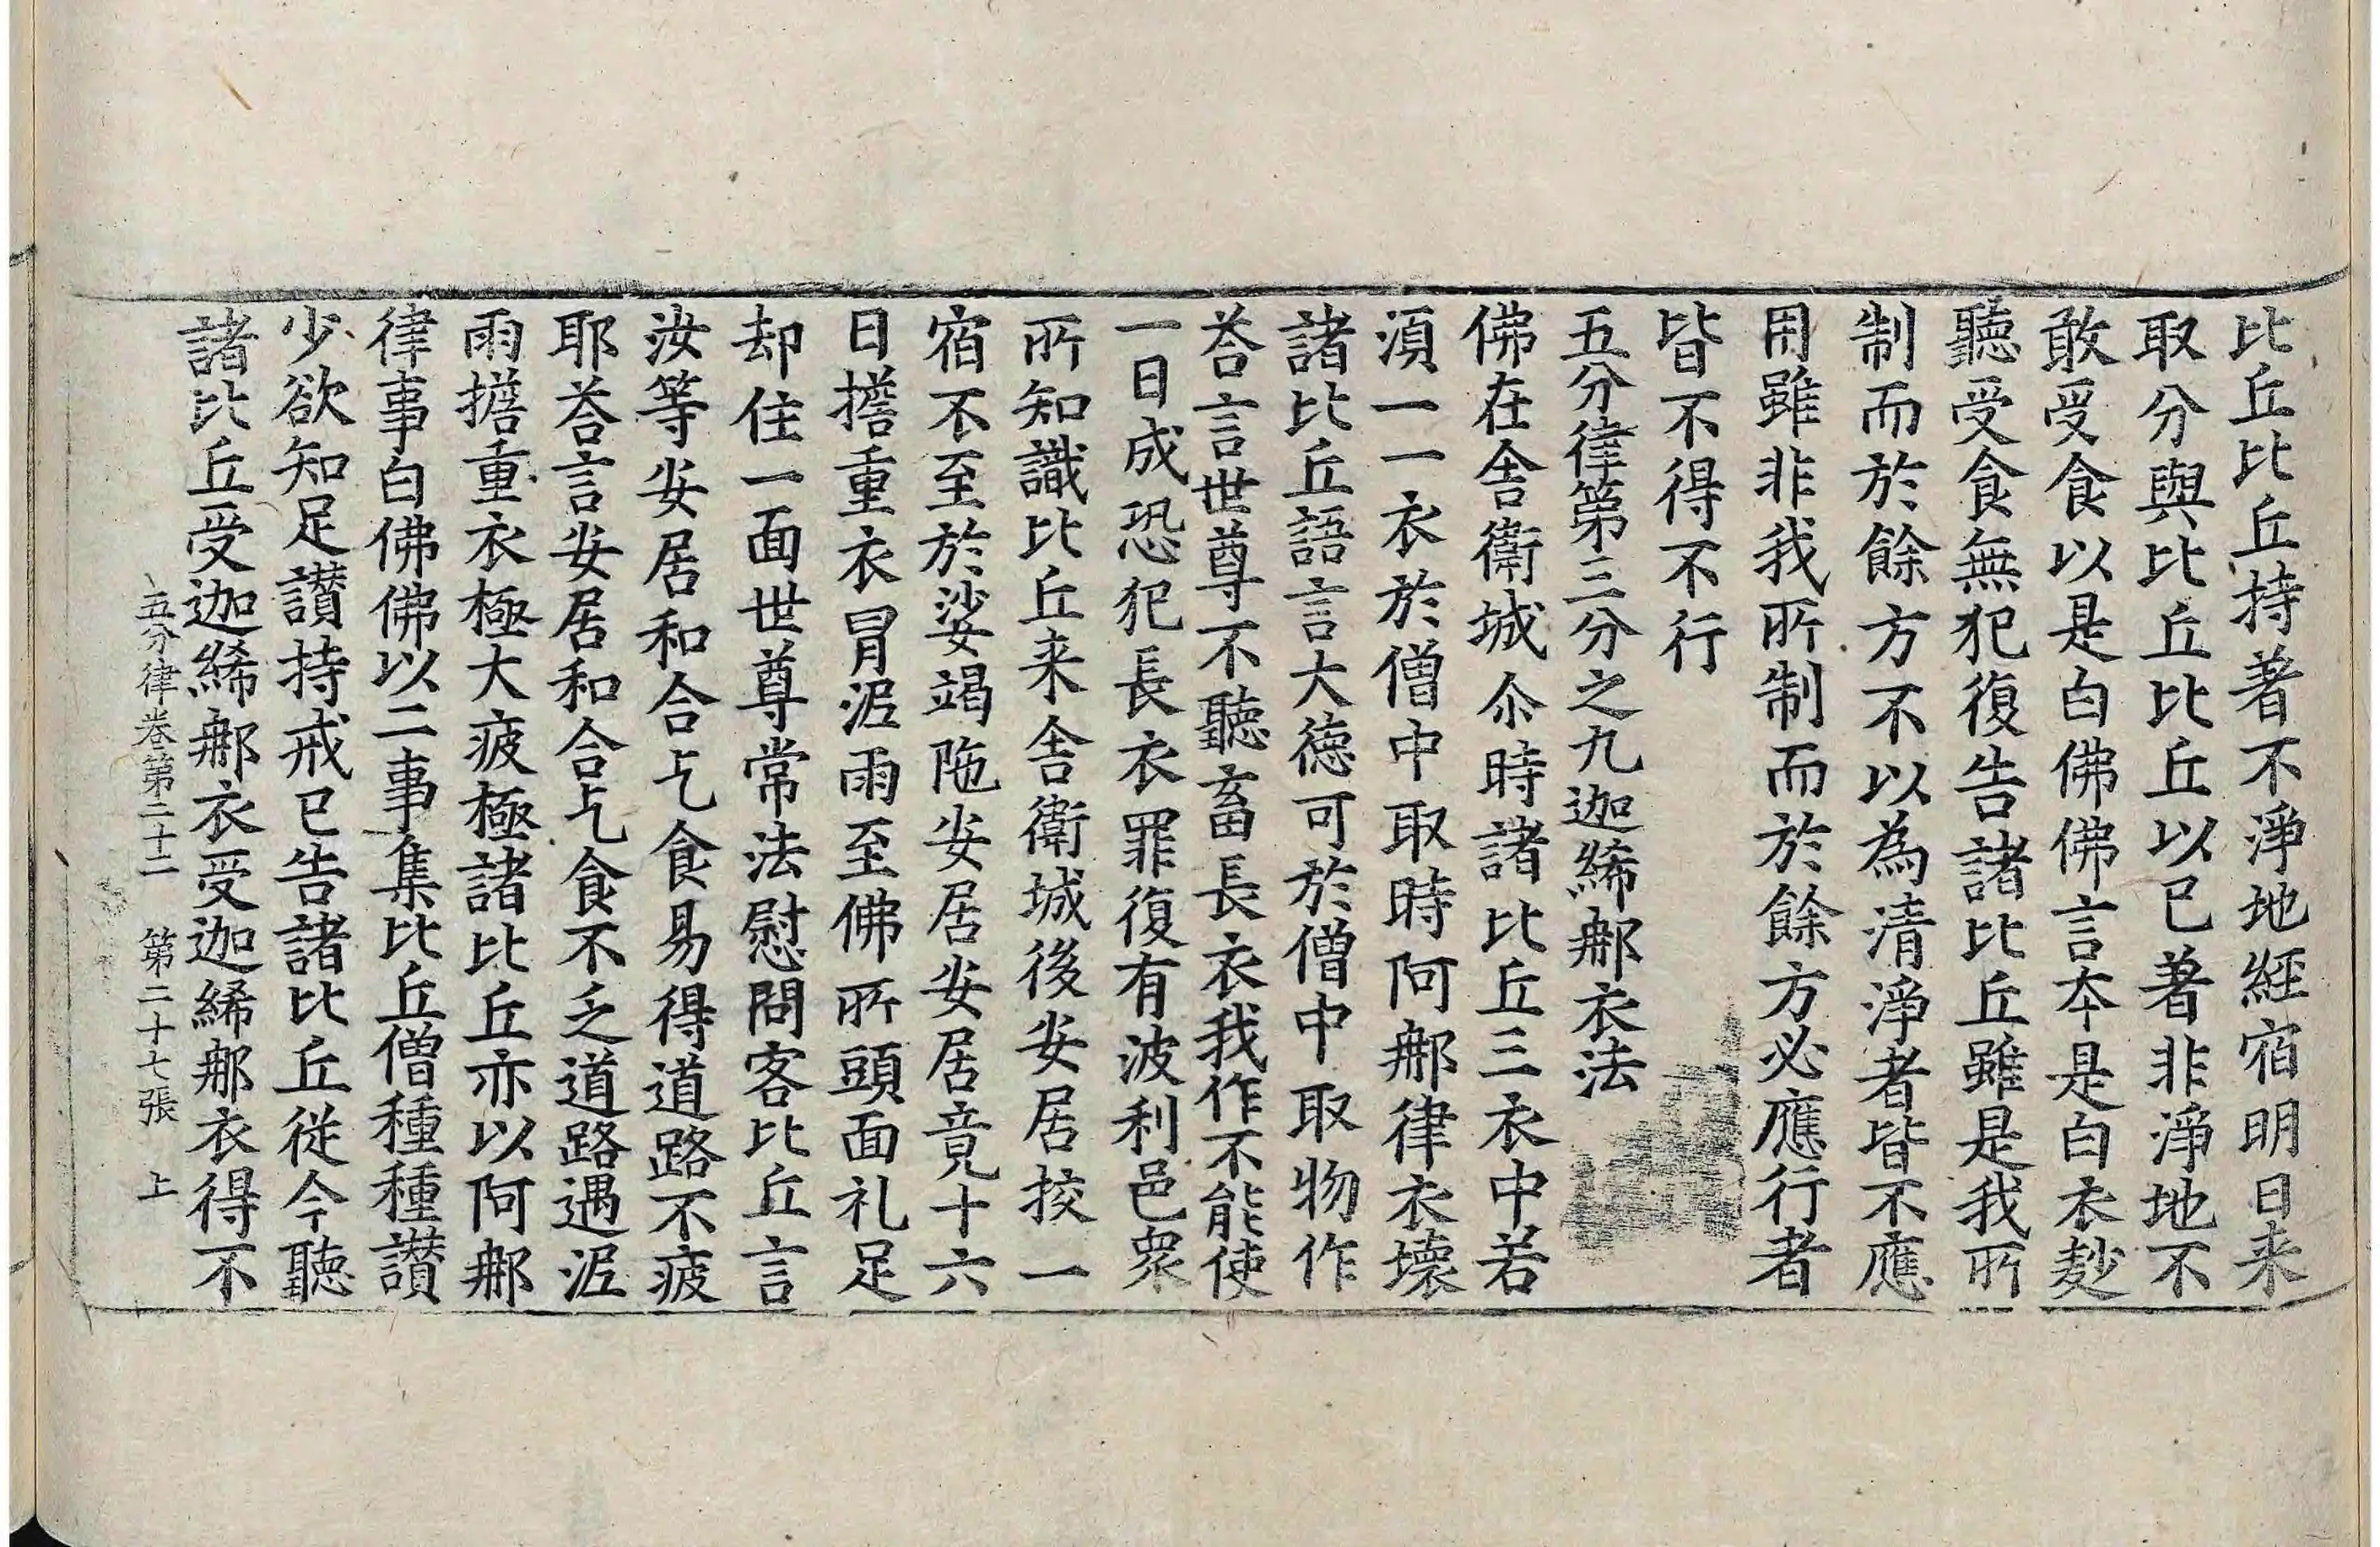 比丘比丘持著不淨地經宿明日来
取分與比丘比丘以已著非淨地不
敢受食以是白佛佛言夲是白衣麨
聽受食無犯復告諸比丘雖是我所
制而於餘方不以為清淨者皆不應
用雖非我所制而於餘方必應行者
皆不得不行
五分律第三分之九迦絺郍衣法
佛在舎衛城尒時諸比丘三衣中若
湏一一衣於僧中取時阿郍律衣壊
諸比丘語言大德可於僧中取物作
荅言世尊不聽畜長衣我作不能使
一日成恐犯長衣罪復有波利邑衆
所知識比丘来舎衛城後安居挍一
宿不至於娑竭陁安居安居竟十六
日擔重衣冒泥雨至佛所頭面礼足
却住一面世尊常法慰問客比丘言
汝等安居和合乞食易得道路不疲
耶荅言安居和合乞食不乏道路遇泥
雨擔重衣極大疲極諸比丘亦以阿郍
律事白佛佛以二事集比丘僧種種讃
少欲知足讃持戒已告諸比丘従今聽
諸比丘受迦絺郍衣受迦絺郍衣得不
五分律卷第二十二 第二十七張 上